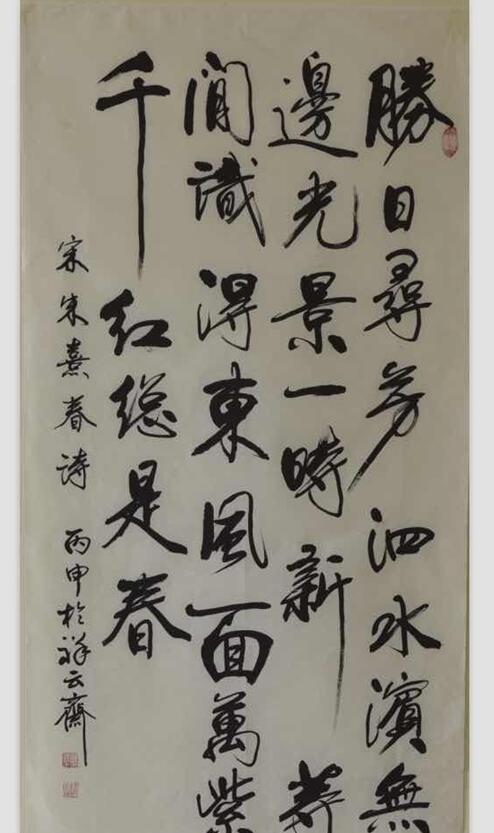 勝日尋芳泗水濱無
邊光景一時新等
閒識得東風面萬紫
千紅總是春
宋朱熹春詩 丙申於祥云齋